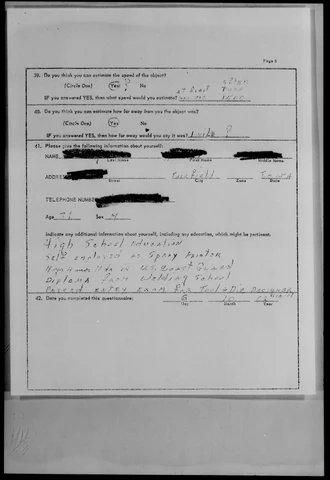 Page 8
39. Do you think you can estimate the speed of the object?
(Circle One) Yes ? No
IF you answered YES, then what speed would you estimate?
40. Do you think you can estimate how far away from you the object was?
(Circle One) Yes No
IF you answered YES, then how far away would you say it was? 1 mile ?
41. Please give the following information about yourself:
NAME
Last Name First Name Middle Name
ADDRESS Iowa
Street City Zone State
TELEPHONE NUMBER
Age Sex
Indicate any additional information about yourself, including any education, which might be pertinent.
High School education
Self employed as Spray Painter
in U.S. Coast Guard
Diploma from Welding School
Passed entry exam for Tool & Die Designer
42. Date you completed this questionnaire:
Day Month Year